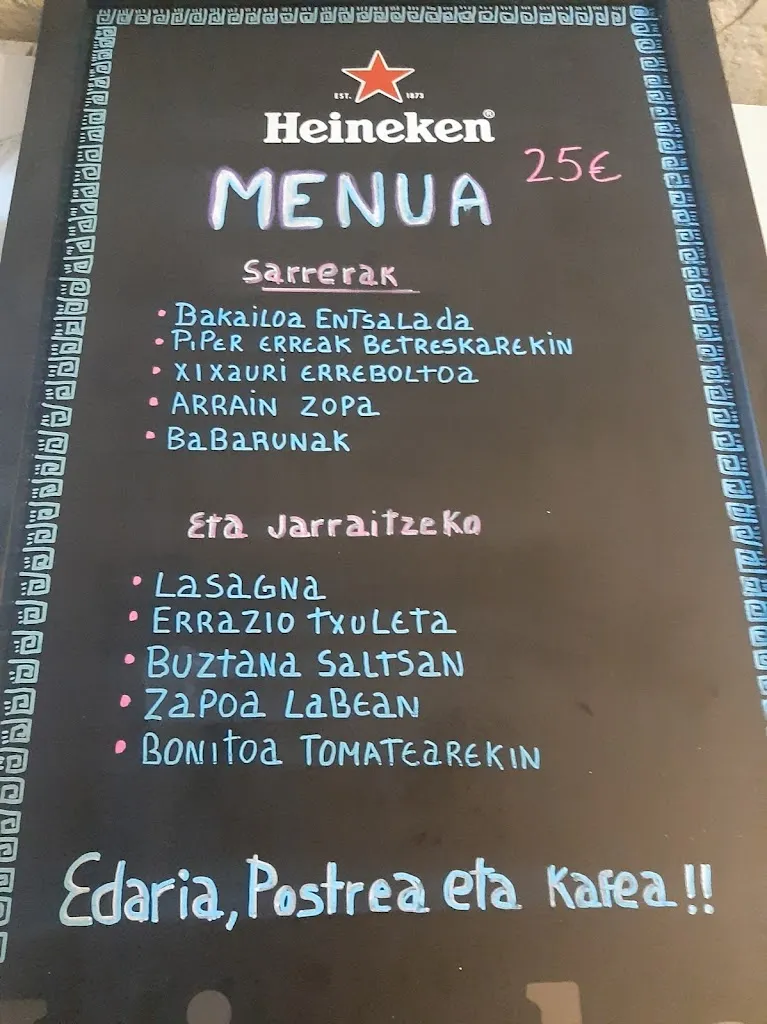 EST. 1873
Heineken®
MENUA 25€
Sarrerak
• Bakailoa ENTSALada
• PiPER ERREAK BETRESKAREKIN
• XIXAURI ERREBOLTOA
• ARRAIN ZOPA
• BaBARUNAK
Eta Jarraitzeko
• LASAGNA
• ERRAZIO TXULETA
• BUZTANA SALTSAN
• ZAPOA LABEAN
• BONITOA TOMATEAREKIN
Edaria, Postrea eta Kafea!!